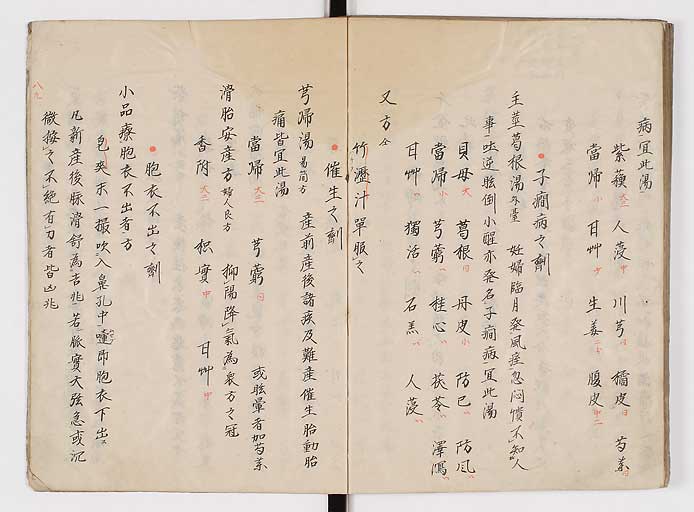 病宜此湯
紫蘓 大二 人蓡 中 川芎 同 橘皮 同 芍薬 同
當帰 小 甘艸 少 生姜 二分 腹皮 中二
子癇病之劑
主葛根湯 外臺 妊婦臨月発風痓忽悶憒不知人
事吐逆眩倒小醒亦発名子癇病宜此湯
貝母 大 葛根 同 丹皮 小 防已 防风
當帰 小 芎藭 桂心 茯苓 澤瀉
甘艸 獨活 石羔 人蓡
又方 仝
竹瀝汁單服之
催生之劑
芎帰湯 易簡方 産前産後諸疾及難産催生胎動胎
痛皆宜此湯
當帰 大二 芎藭 同 或眩暈者加芍薬
滑胎安産方 婦人良方 抑陽降氣為衆方之冠
香附 大二 枳實 中 甘艸 中
胞衣不出之劑
小品療胞衣不出者方
皂莢末一撮吹入鼻孔中嚏即胞衣下出
凡新産後脉滑舒為吉兆若脈實大弦急或沉
微按之不絕有力者皆凶兆
八九